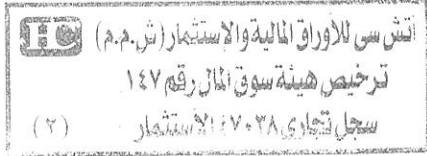 اتش سى للأوراق المالية والاستثمار (ش.م.م) HC
ترخيص هيئة سوق المال رقم ١٤٧
سجل تجارى ١٤٧٠٣٨ الاستثمار
(٢)